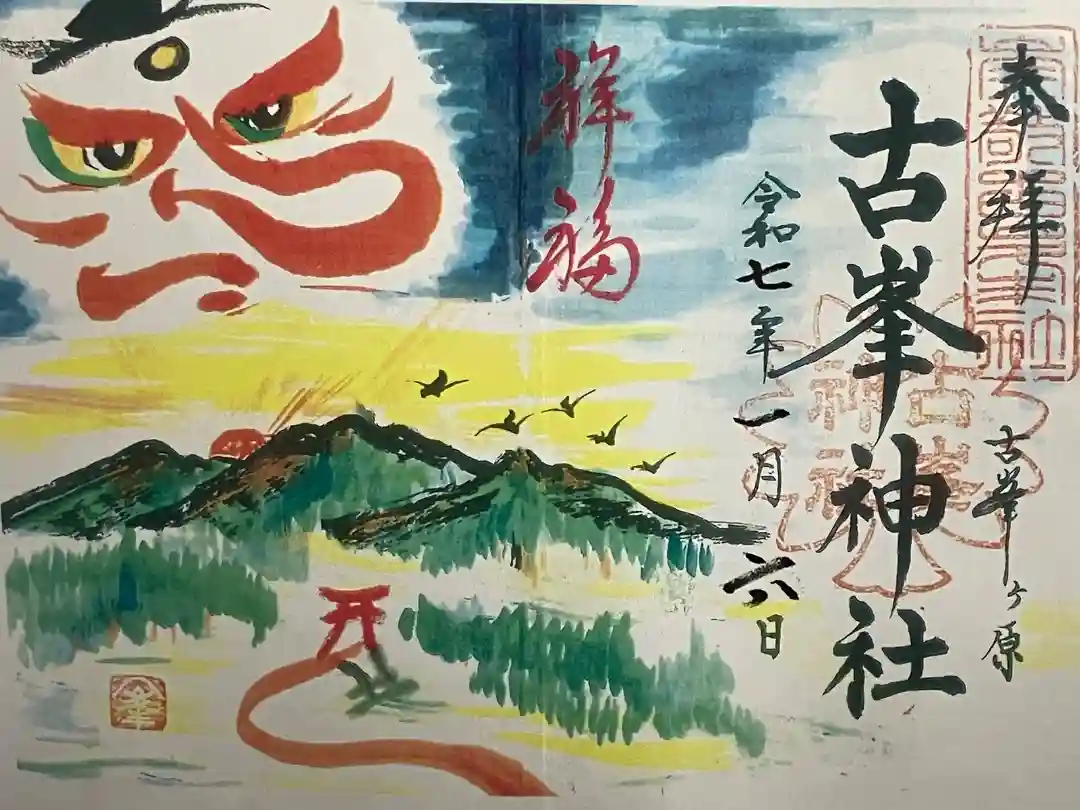 奉拝
古峯ヶ原
古峯神社
令和七年一月六日
祥福
古峯
神社